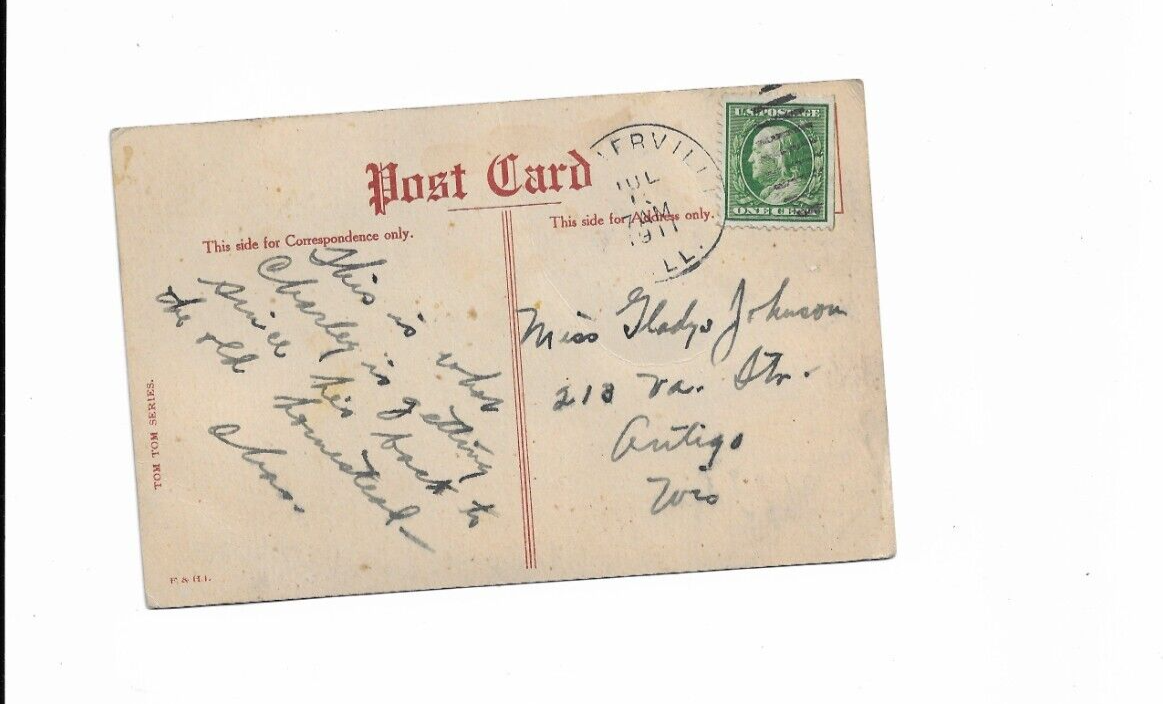 Post Card
This side for Correspondence only.
This side for Address only.
ERVILLE
JUL
7 AM
1911
ILL.
U.S. POSTAGE
ONE CENT
This is what
Charley is getting
since his back to
the old homestead -
Chas.
Miss Gladys Johnson
213 Va. Str.
Antigo
Wis
TOM TOM SERIES.